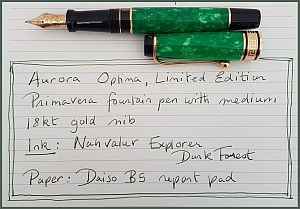 Aurora Optima, Limited Edition
Primavera fountain pen with medium
18kt gold nib
Ink: Nahvalur Explorer
Dark Forest
Paper: Daiso B5 report pad